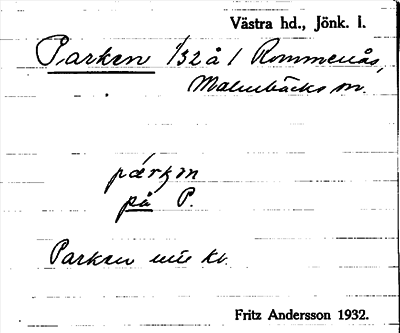 Västra hd., Jönk. l.
Parken 1/32 å 1 Rommenås,
Malmbäcks sn.
párkən
på P.
Parken enl. kt.
Fritz Andersson 1932.